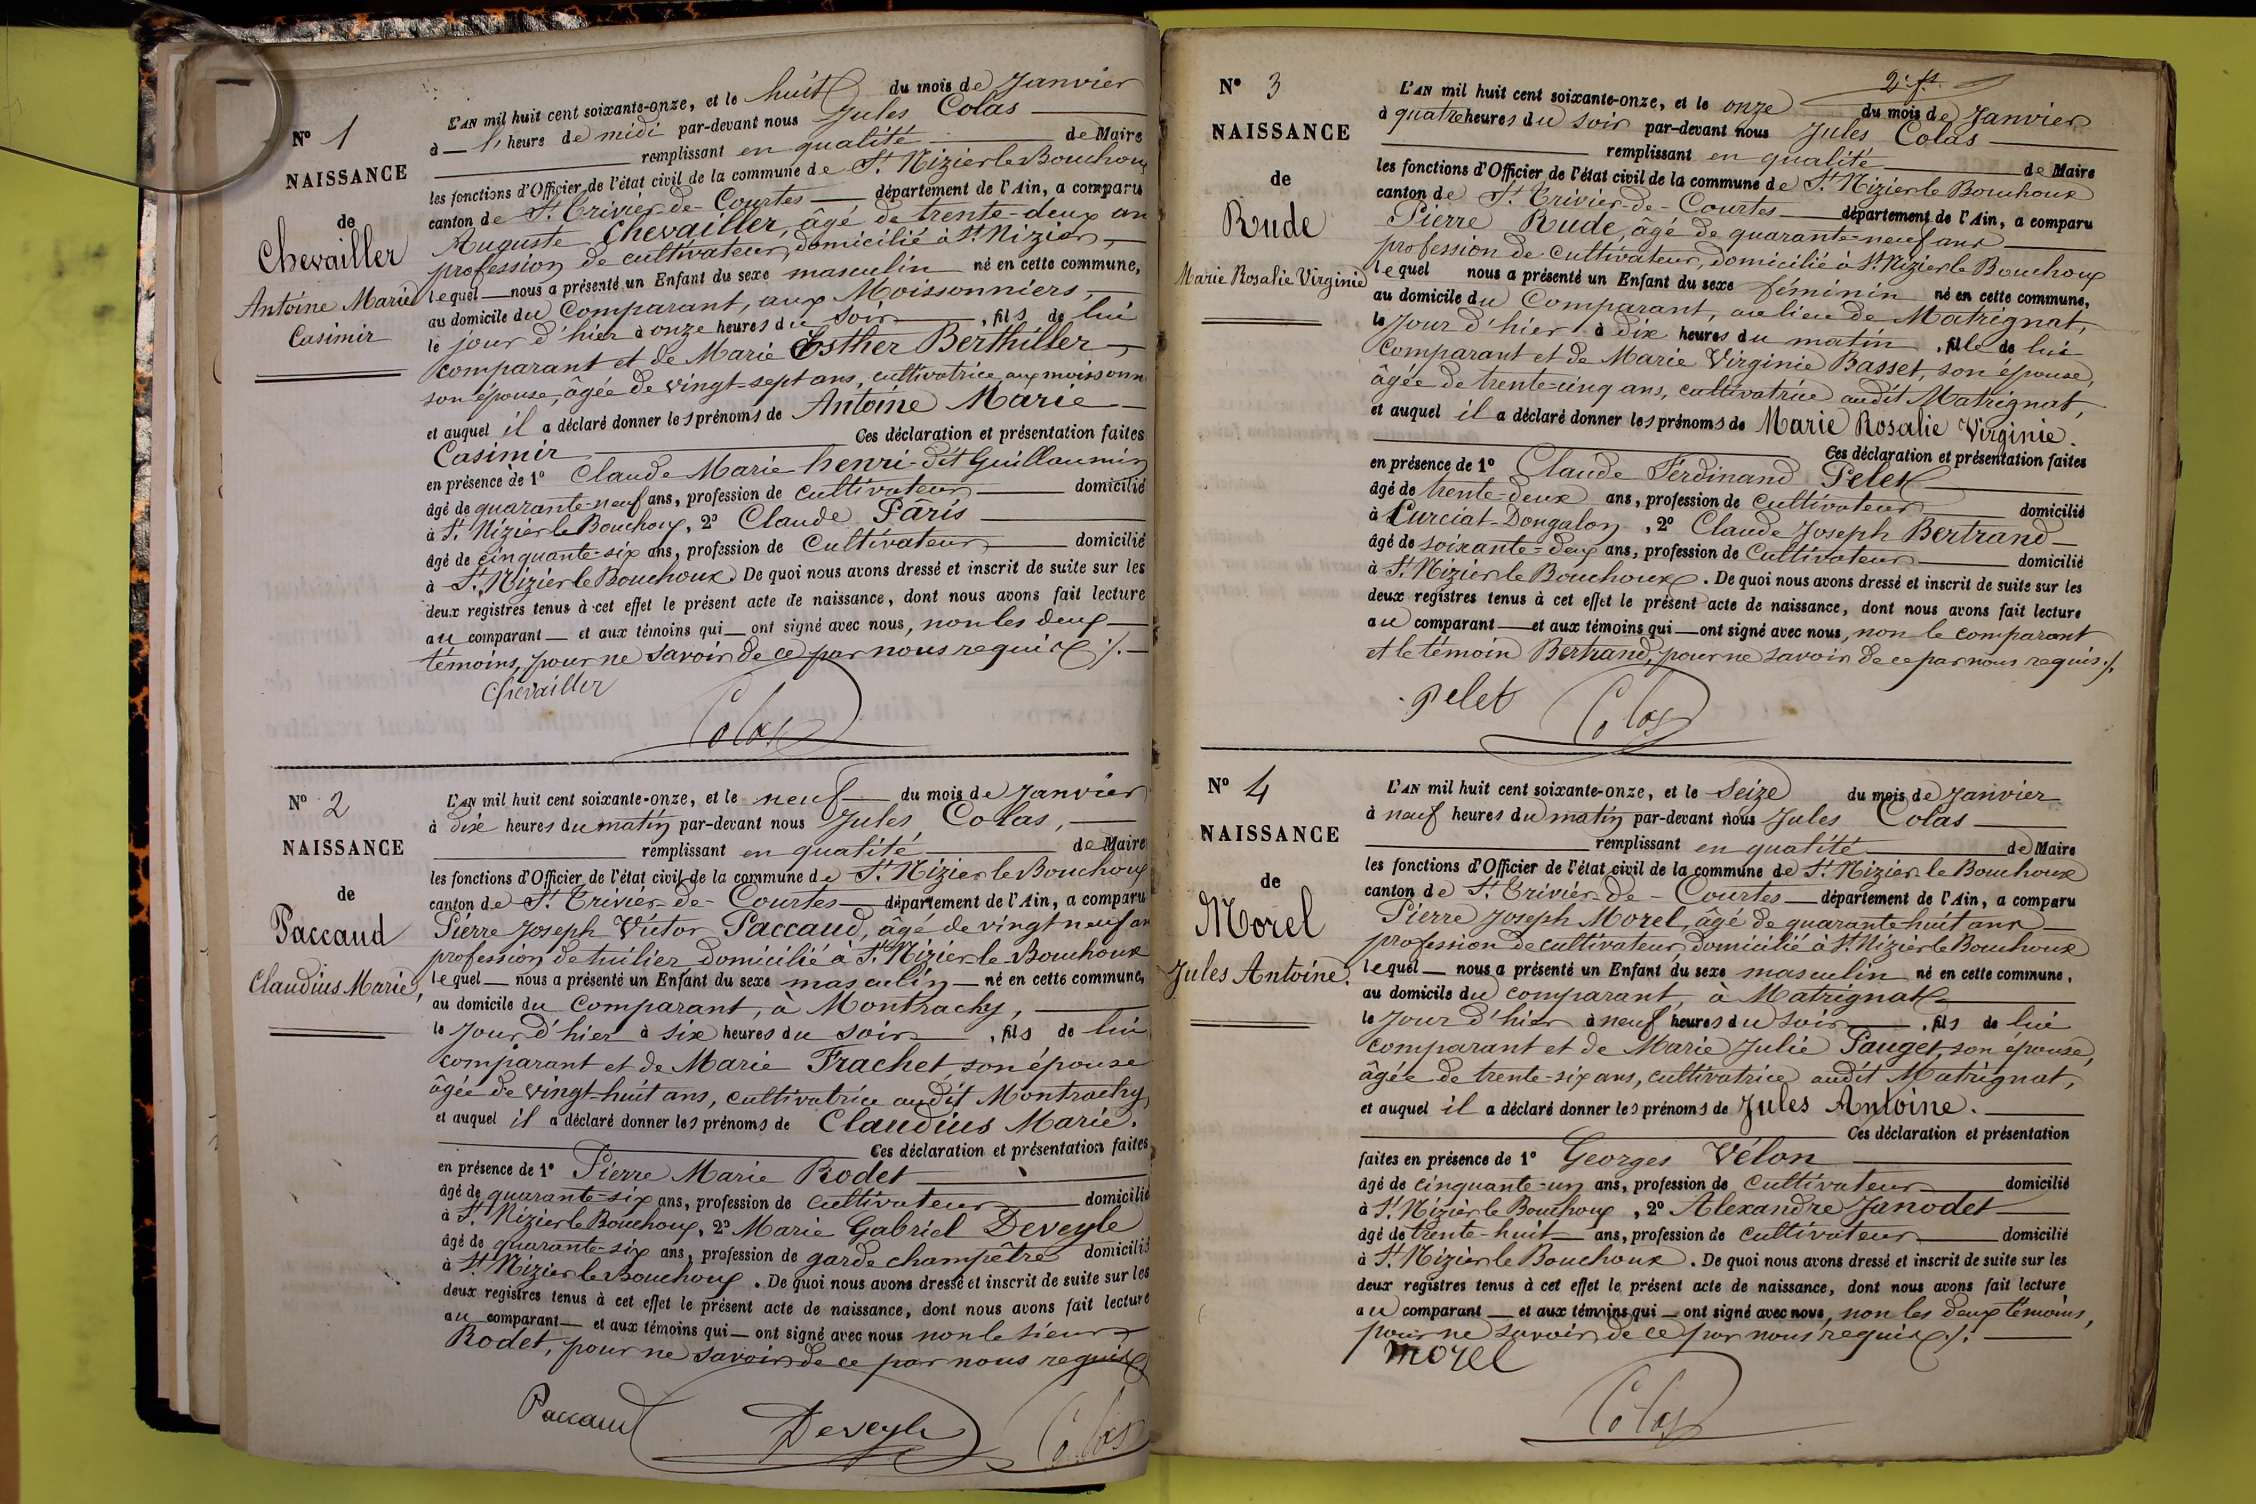 N° 1
NAISSANCE
de
Chevailler
Antoine Marie
Casimir
L'AN mil huit cent soixante-onze, et le huit du mois de Janvier
à l' heure de midi par-devant nous Jules Colas
remplissant en qualité de Maire
les fonctions d'Officier de l'état civil de la commune de St. Nizier le Bouchoux
canton de St. Trivier-de-Courtes, département de l'Ain, a comparu
Auguste Chevailler, âgé de trente-deux an
profession de cultivateur, domicilié à St. Nizier,
lequel nous a présenté un Enfant du sexe masculin né en cette commune,
au domicile du Comparant, aux Moissonniers,
le jour d'hier à onze heures du soir, fils de lui
comparant et de Marie Esther Berthiller,
son épouse, âgée de vingt-sept ans, cultivatrice aux moissonn
et auquel il a déclaré donner les prénoms de Antoine Marie
Casimir Ces déclaration et présentation faites
en présence de 1° Claude Marie henri-dit Guillaumin
âgé de quarante-neuf ans, profession de cultivateur domicilié
à St. Nizier le Bouchoux, 2° Claude Paris
âgé de cinquante-six ans, profession de Cultivateur domicilié
à St. Nizier le Bouchoux. De quoi nous avons dressé et inscrit de suite sur les
deux registres tenus à cet effet le présent acte de naissance, dont nous avons fait lecture
au comparant et aux témoins qui ont signé avec nous, non les deux
témoins, pour ne savoir de ce par nous requis ./.
Chevailler
Colas
N° 2
NAISSANCE
de
Paccaud
Claudius Marie,
L'AN mil huit cent soixante-onze, et le neuf du mois de Janvier
à dix heures du matin par-devant nous Jules Colas,
remplissant en qualité de Maire
les fonctions d'Officier de l'état civil de la commune de St. Nizier le Bouchoux
canton de St. Trivier-de-Courtes département de l'Ain, a comparu
Pierre Joseph Victor Paccaud, âgé de vingt neuf an
profession de tuilier domicilié à St. Nizier-le-Bouchoux
lequel nous a présenté un Enfant du sexe masculin né en cette commune,
au domicile du Comparant, à Montrachy,
le Jour d'hier à six heures du soir, fils de lui
comparant et de Marie Frachet, son épouse
âgée de vingt-huit ans, cultivatrice audit Montrachy
et auquel il a déclaré donner les prénoms de Claudius Marie.
Ces déclaration et présentation faites
en présence de 1° Pierre Marie Rodet
âgé de quarante-six ans, profession de cultivateur domicilié
à St. Nizier le Bouchoux, 2° Marie Gabriel Deveyle
âgé de quarante-six ans, profession de garde champêtre domicilié
à St. Nizier le Bouchoux. De quoi nous avons dressé et inscrit de suite sur les
deux registres tenus à cet effet le présent acte de naissance, dont nous avons fait lecture
au comparant et aux témoins qui ont signé avec nous non le sieur
Rodet, pour ne savoir de ce par nous requis
Paccaud Deveyle Colas
2e. ft.
N° 3
NAISSANCE
de
Rude
Marie Rosalie Virginie
L'AN mil huit cent soixante-onze, et le onze du mois de Janvier
à quatre heures du soir par-devant nous Jules Colas
remplissant en qualité de Maire
les fonctions d'Officier de l'état civil de la commune de St. Nizier le Bouchoux
canton de St. Trivier-de-Courtes département de l'Ain, a comparu
Pierre Rude, âgé de quarante-neuf ans
profession de cultivateur, domicilié à St. Nizier le Bouchoux
lequel nous a présenté un Enfant du sexe féminin né en cette commune,
au domicile du Comparant, au lieu de Matrignat,
le Jour d'hier à dix heures du matin, fille de lui
comparant et de Marie Virginie Basset, son épouse,
âgée de trente-cinq ans, cultivatrice audit Matrignat,
et auquel il a déclaré donner les prénoms de Marie Rosalie Virginie.
Ces déclaration et présentation faites
en présence de 1° Claude Ferdinand Pelet
âgé de trente-deux ans, profession de Cultivateur domicilié
à Curciat-Dongalon, 2° Claude Joseph Bertrand
âgé de soixante-deux ans, profession de Cultivateur domicilié
à St. Nizier le Bouchoux. De quoi nous avons dressé et inscrit de suite sur les
deux registres tenus à cet effet le présent acte de naissance, dont nous avons fait lecture
au comparant et aux témoins qui ont signé avec nous, non le comparant
et le témoin Bertrand, pour ne savoir de ce par nous requis ./.
Pelet Colas
N° 4
NAISSANCE
de
Morel
Jules Antoine.
L'AN mil huit cent soixante-onze, et le Seize du mois de Janvier
à neuf heures du matin par-devant nous Jules Colas
remplissant en qualité de Maire
les fonctions d'Officier de l'état civil de la commune de St. Nizier le Bouchoux
canton de St. Trivier-de-Courtes département de l'Ain, a comparu
Pierre Joseph Morel, âgé de quarante-huit ans
profession de cultivateur, domicilié à St. Nizier le Bouchoux
lequel nous a présenté un Enfant du sexe masculin né en cette commune,
au domicile du comparant, à Matrignat
le Jour d'hier à neuf heures du soir, fils de lui
comparant et de Marie Julie Pauget, son épouse,
âgée de trente-six ans, cultivatrice audit Matrignat,
et auquel il a déclaré donner les prénoms de Jules Antoine.
Ces déclaration et présentation
faites en présence de 1° Georges Vélon
âgé de cinquante-un ans, profession de cultivateur domicilié
à St. Nizier le Bouchoux, 2° Alexandre Janodet
âgé de trente-huit ans, profession de cultivateur domicilié
à St. Nizier le Bouchoux. De quoi nous avons dressé et inscrit de suite sur les
deux registres tenus à cet effet le présent acte de naissance, dont nous avons fait lecture
au comparant et aux témoins qui ont signé avec nous, non les deux témoins,
pour ne savoir de ce par nous requis ./.
morel
Colas